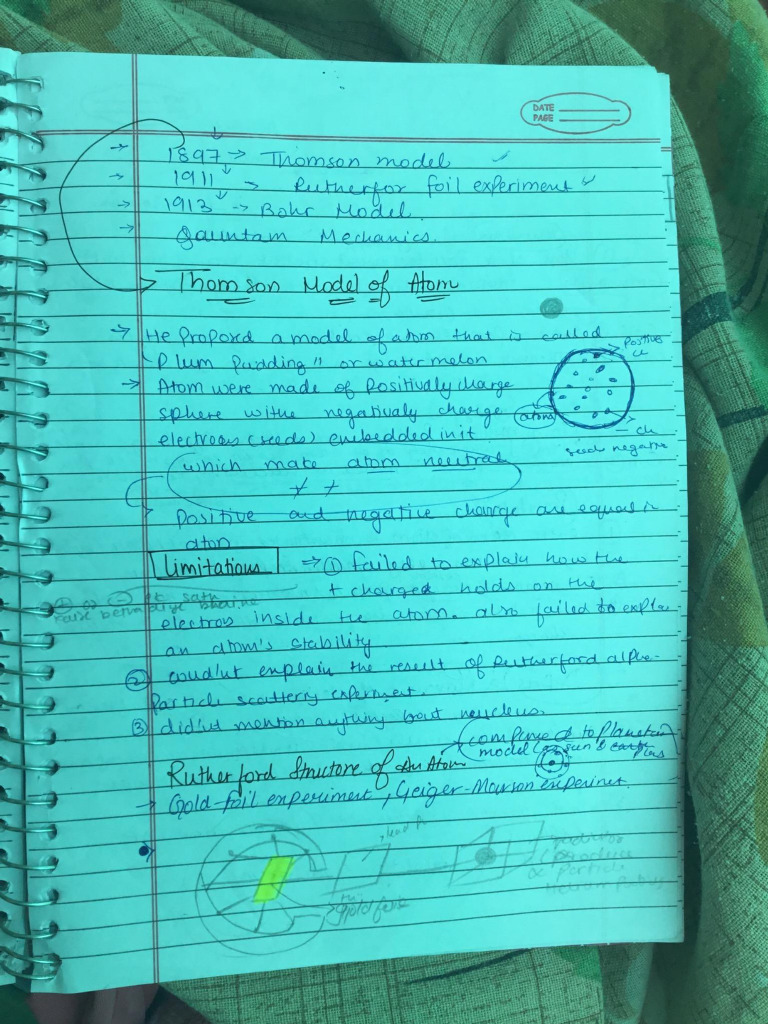 DATE
PAGE
1897 → Thomson model
1911 → Rutherfor foil experiment
1913 → Bohr Model.
Qauntam Mechanics.
Thomson Model of Atom
→ He Propord a model of atom that is called
"Plum Pudding" or water melon
→ Atom were made of Positivly charge
sphere withe negativaly charge
electrons (seeds) embedded in it
Positive
atoms
seed negative
which make atom neutral
Positive and negative charge are equal in
atom
Limitations → ① failed to explain how the
+ charged holds on the
electros inside the atom. also failed to expla
an atom's stability
② coud'ut explain the result of Rutherford alpha-
Particle scattery experiment.
③ did'ut mention anything bout neucleus.
compine to Planetary
model sun &
Rutherford Structore of An Atom
→ Gold-foil experiment, Geiger-Marson experiment.
Gold foil
α Particle